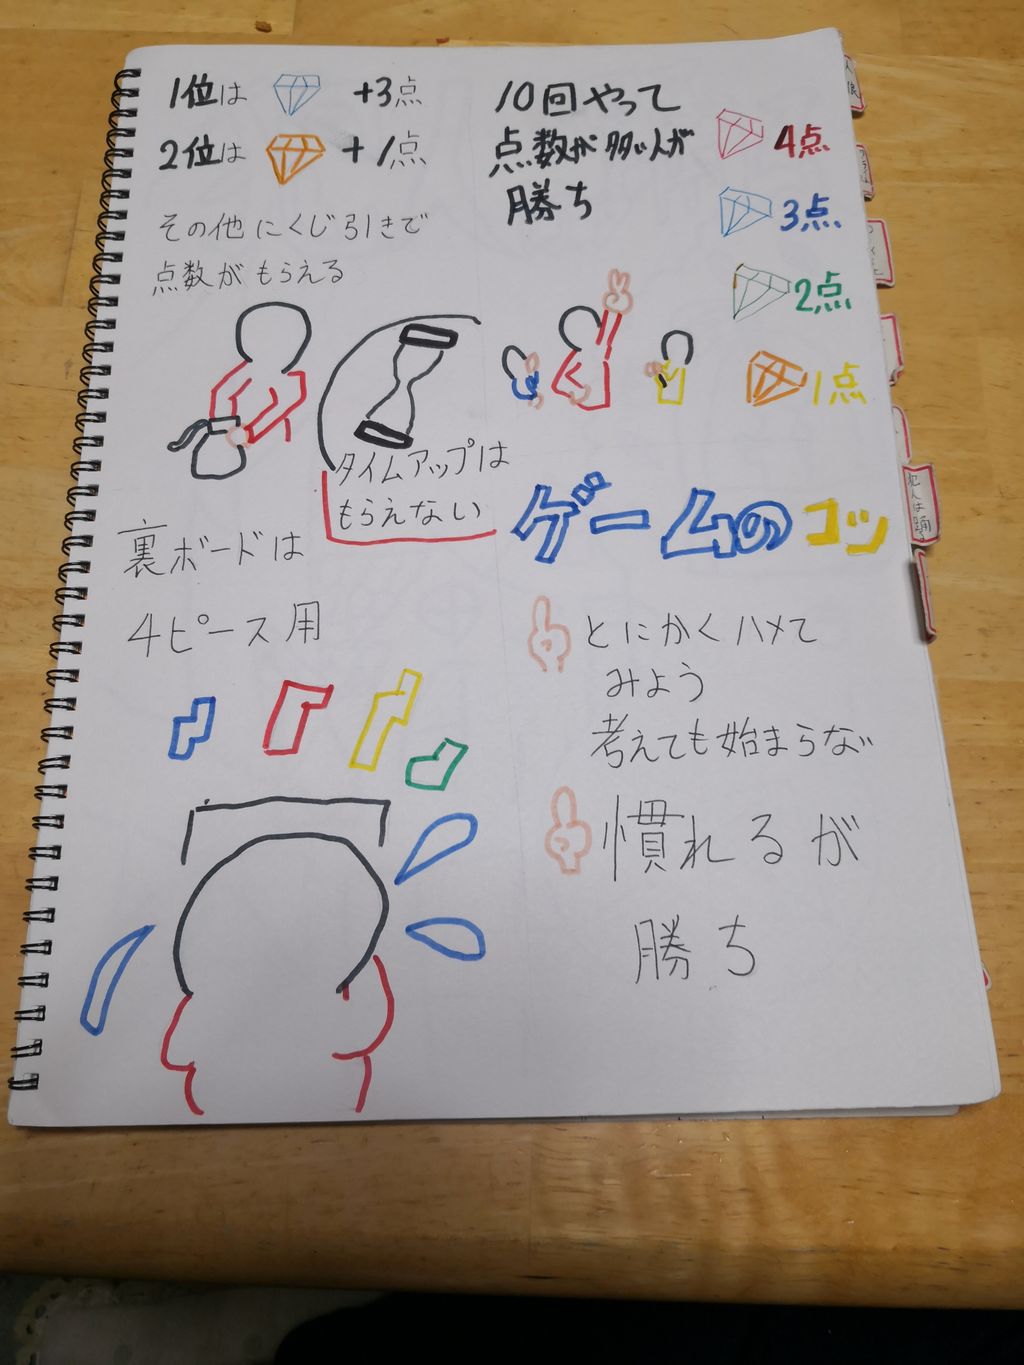 1位は +3点
2位は +1点
その他にくじ引きで
点数がもらえる
タイムアップは
もらえない
裏ボードは
4ピース用
10回やって
点数が多い人が
勝ち
4点
3点
2点
1点
ゲームのコツ
とにかくハメて
みよう
考えても始まらない
慣れるが
勝ち
犯人は踊